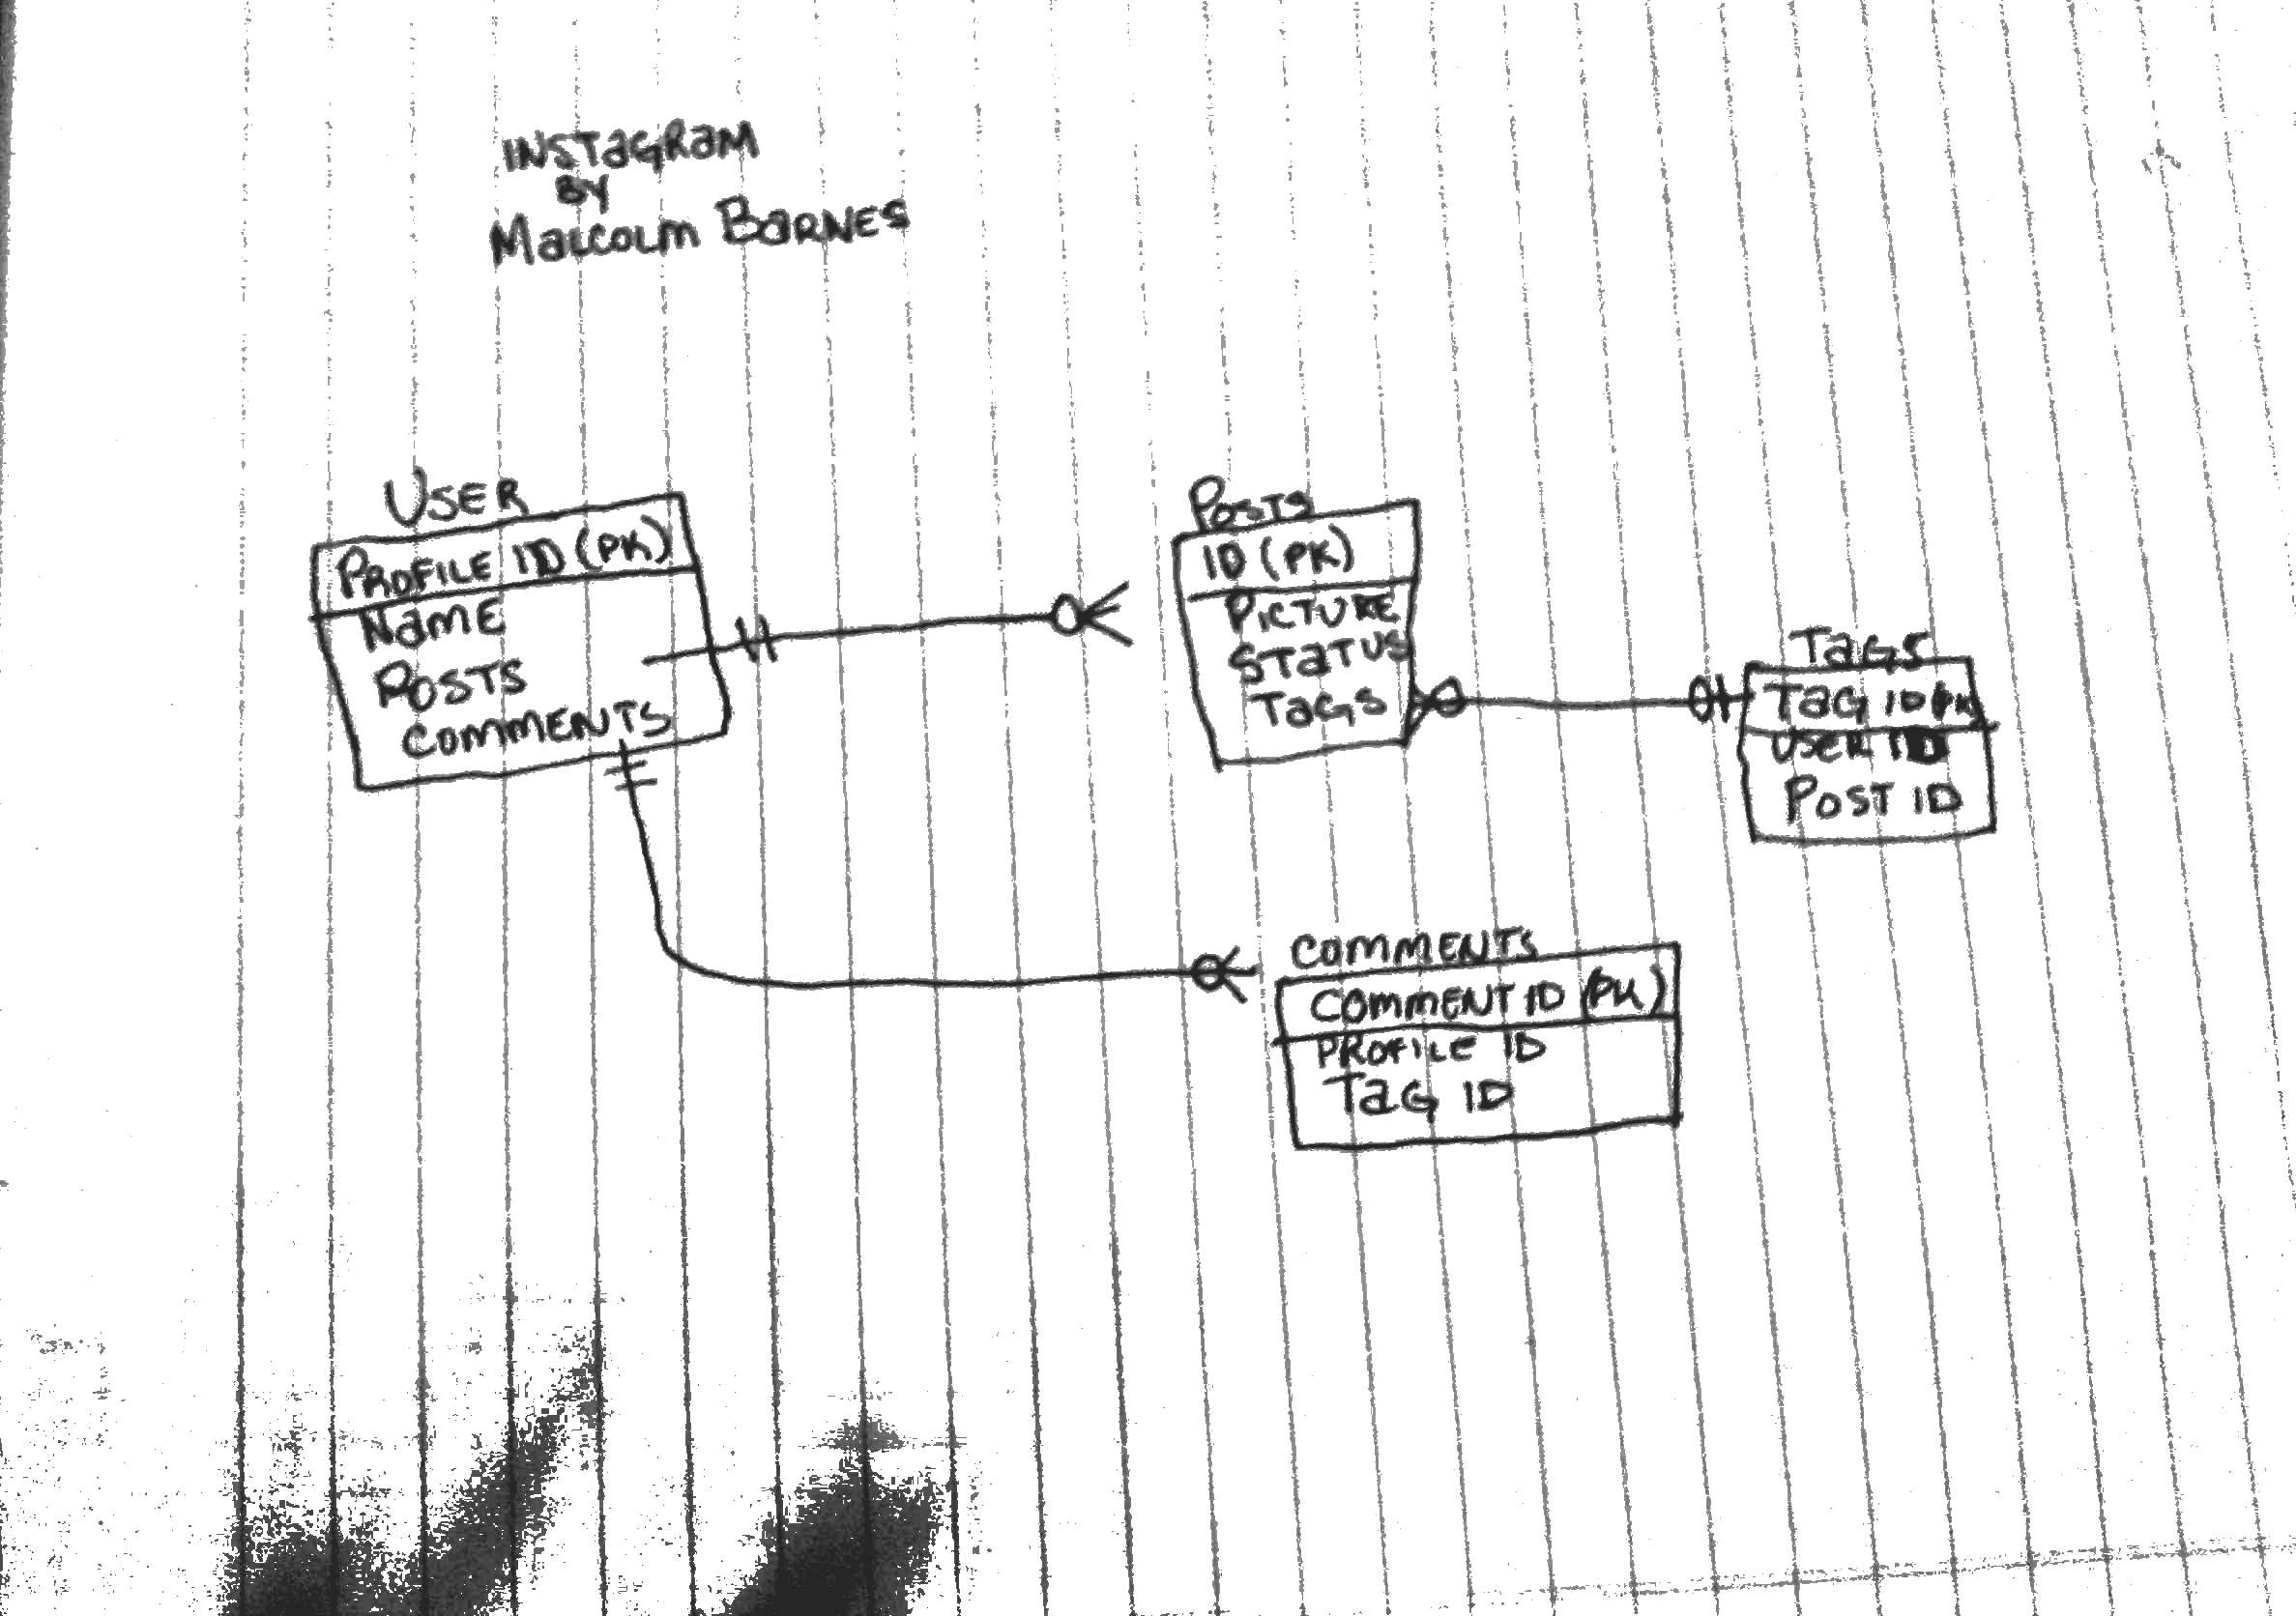 INSTAGRAM
BY
MALCOLM BARNES
USER
PROFILE ID (PK)
NAME
POSTS
COMMENTS
POSTS
ID (PK)
PICTURE
STATUS
TAGS
TAGS
TAG ID (PK)
USER ID
POST ID
COMMENTS
COMMENT ID (PK)
PROFILE ID
TAG ID